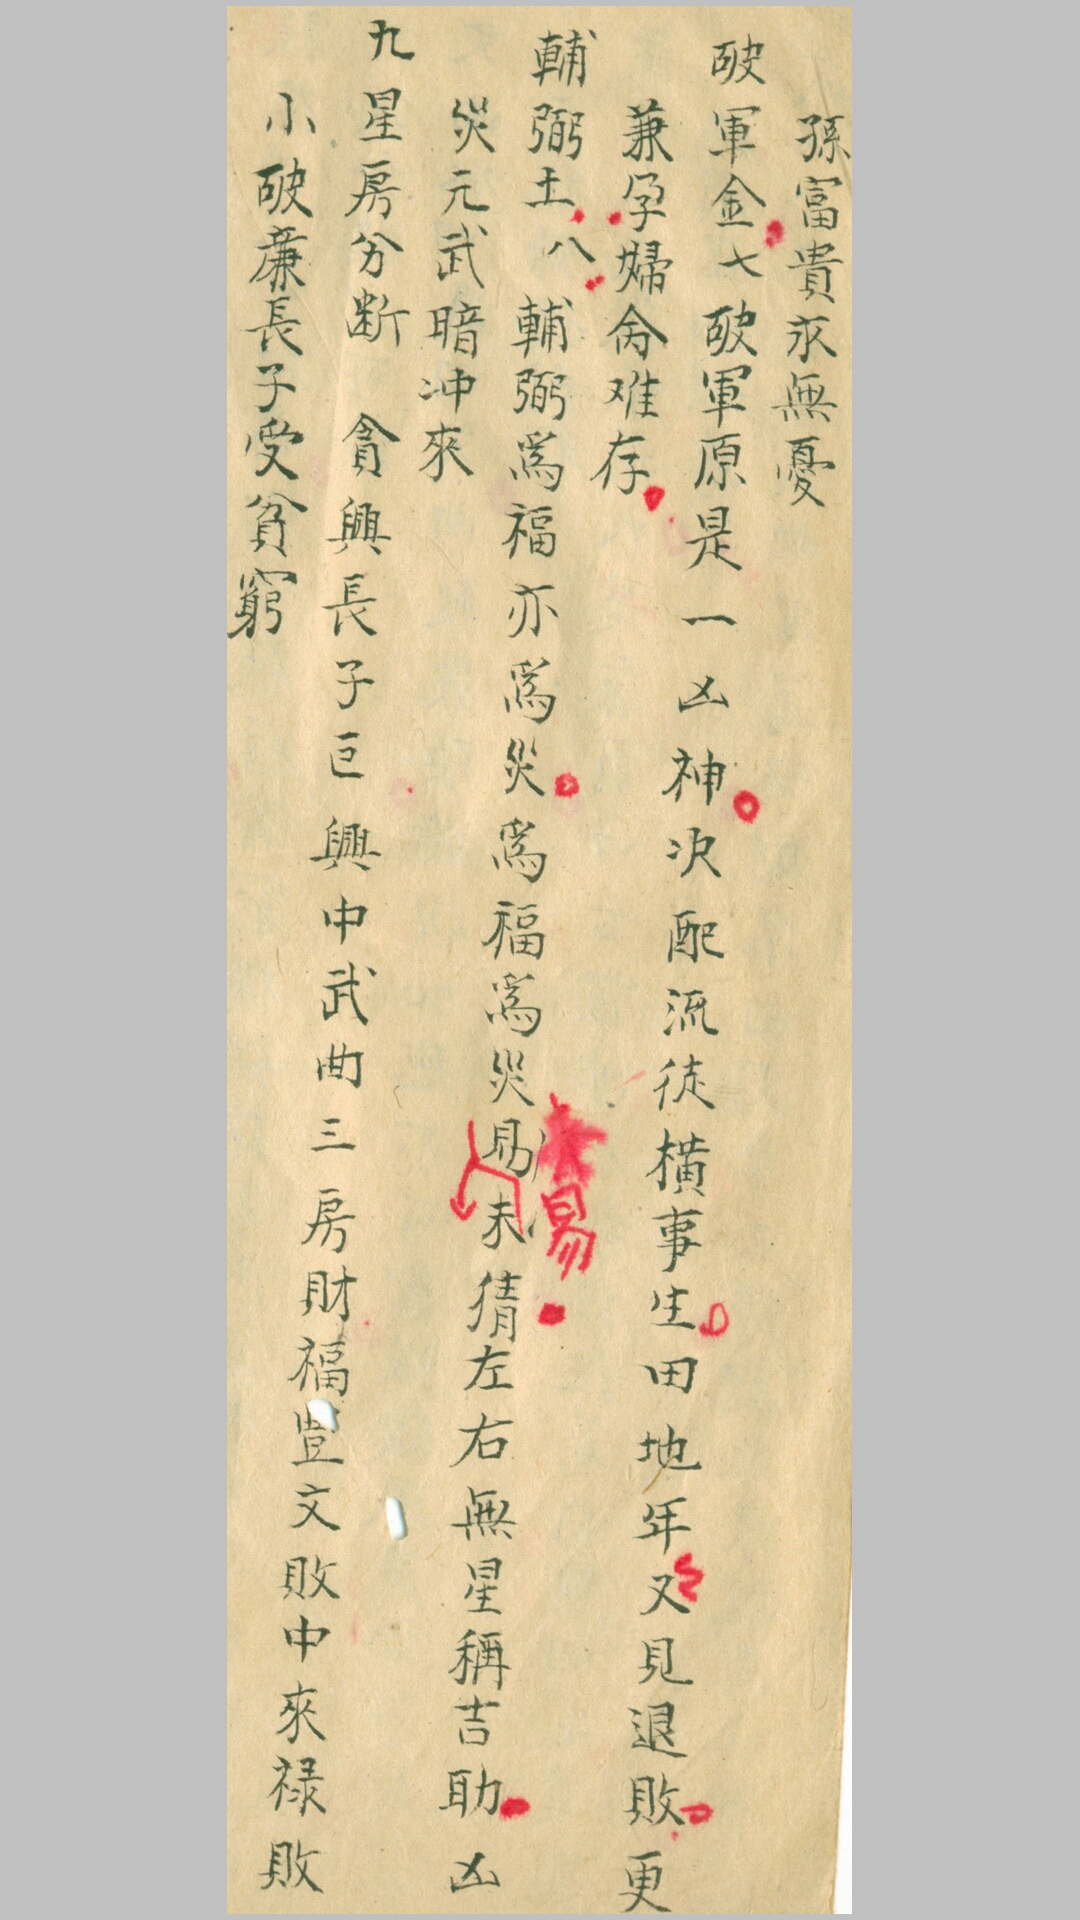 孫富貴永無憂
破軍金七 破軍原是一凶神次配流徒横事生田地年又見退敗更
兼孕婦命难存
輔弼土八 輔弼為福亦為災為福為災易未猜左右無星稱吉助凶
易
災元武暗冲來
九星房分断 貪興長子巨興中武曲三房財福豈文敗中來禄敗
小破廉長子受貧窮